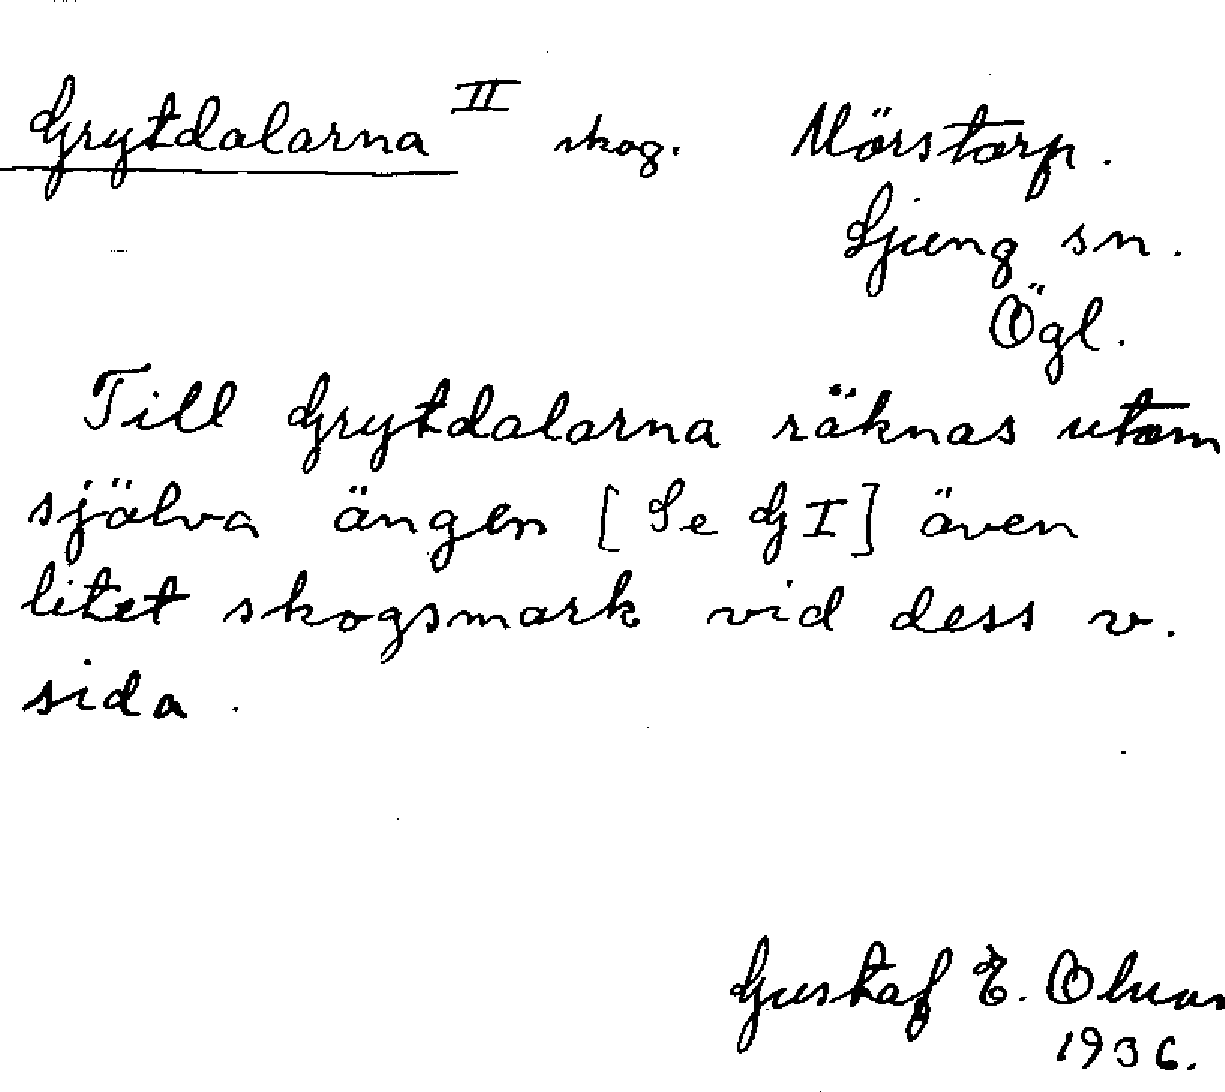 Grytdalarna II skog. Mörstorp.
Ljung sn.
Ögl.
Till Grytdalarna räknas utom
själva ängen [Se G I] även
litet skogsmark vid dess v.
sida.
Gustaf E.
1936.